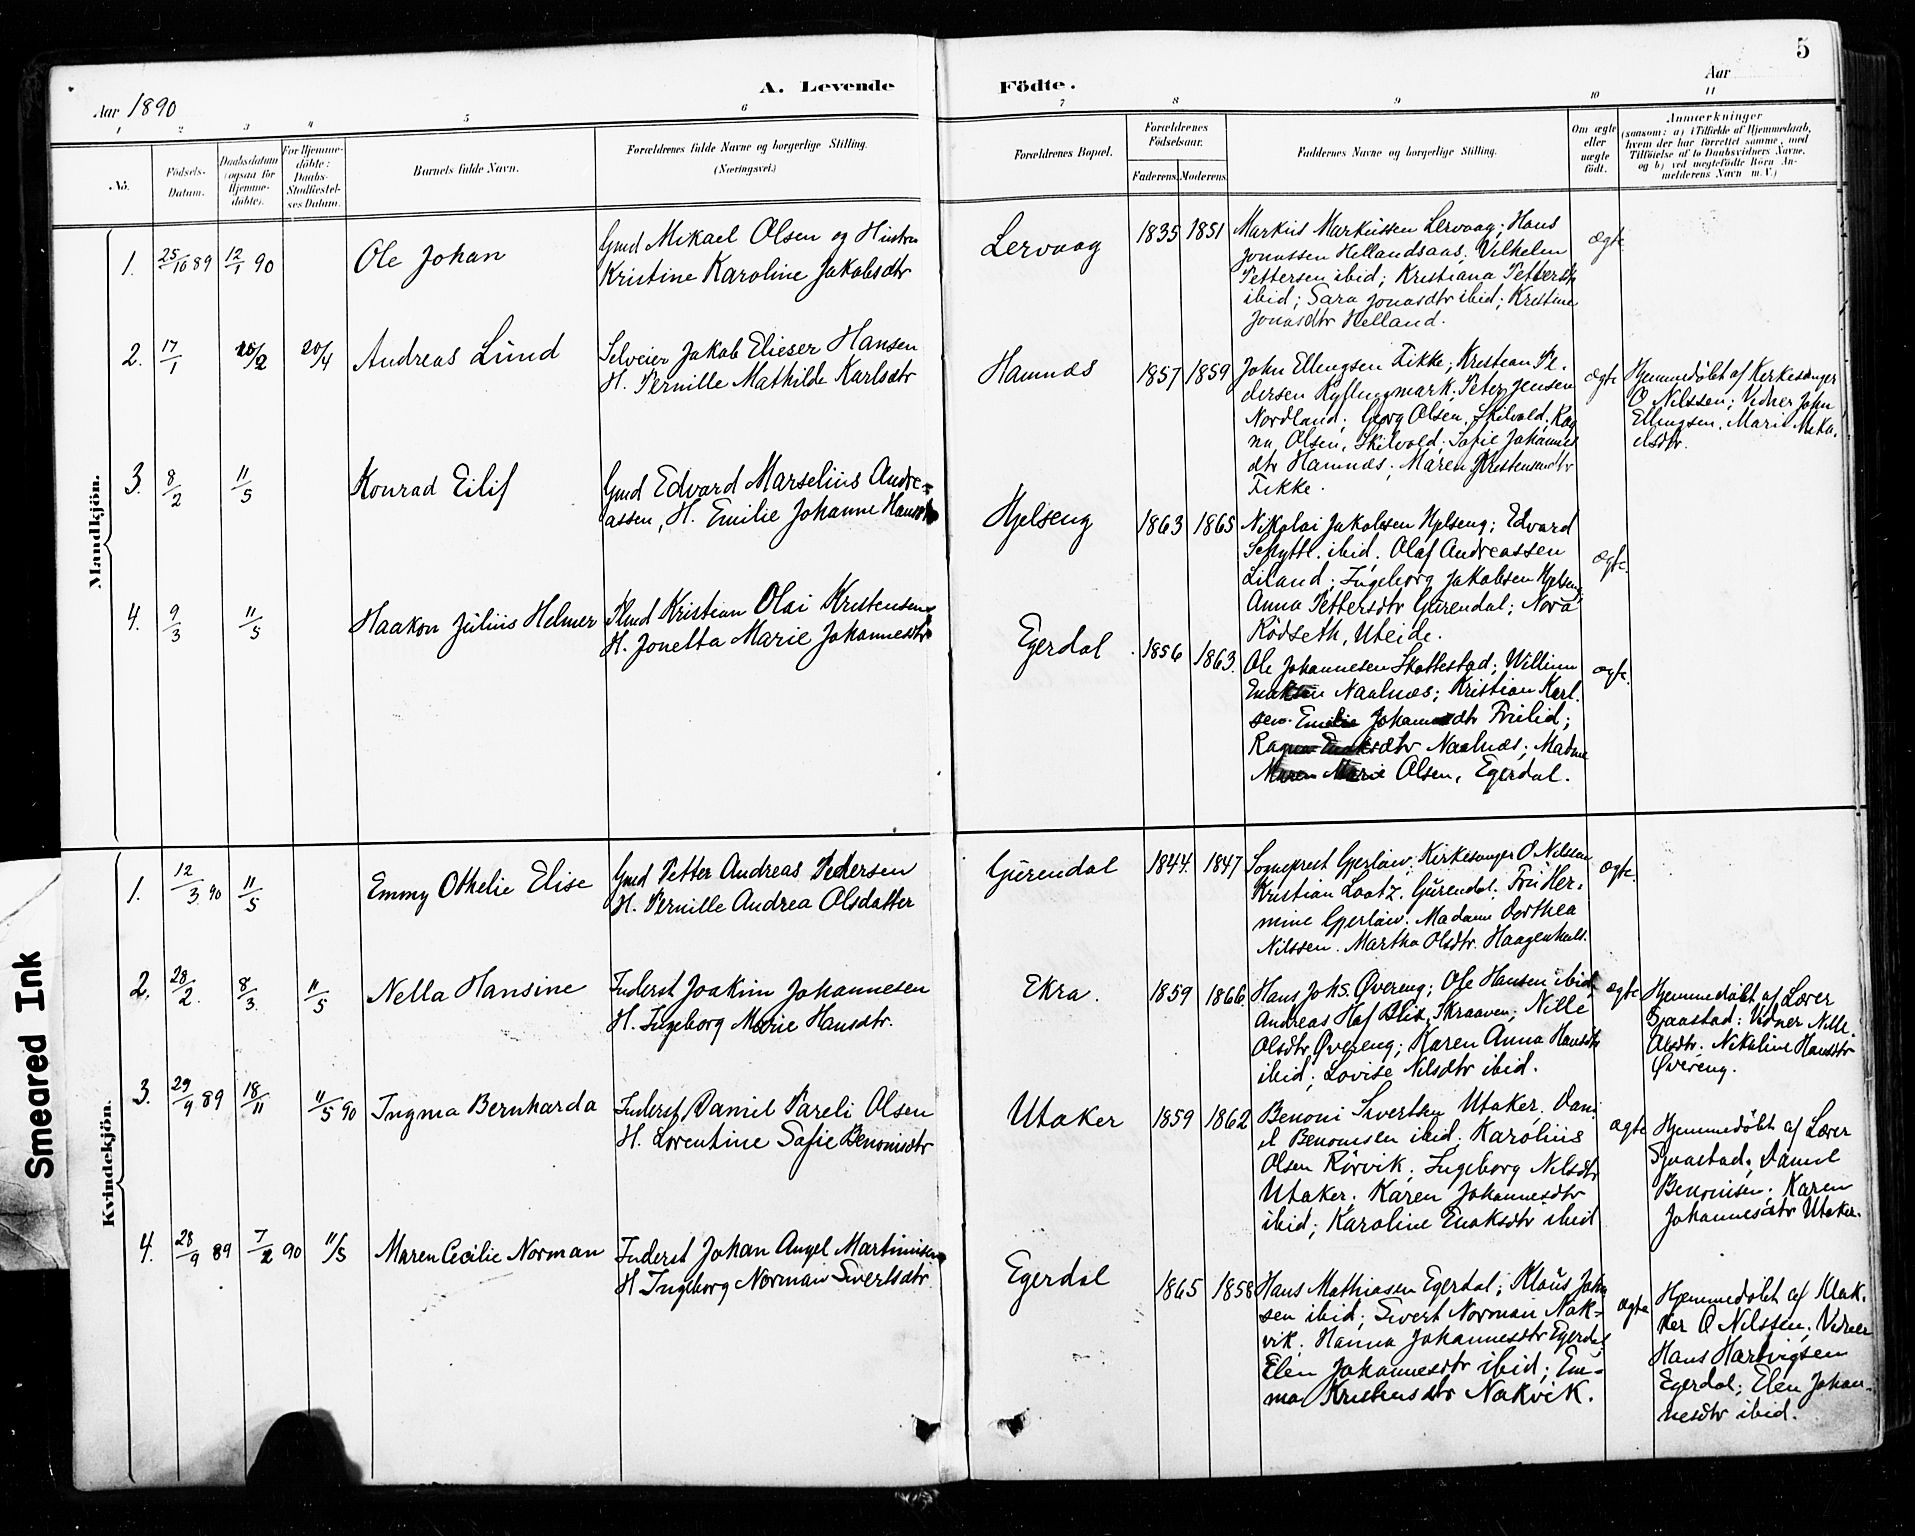 5
Aar 1890
A. Levende
Födte.
Aar
1 2 3 4 5 6 7 8 9 10 11
No.
Födsels-
Datum.
Daabsdatum
(ogsaa for
Hjemme-
döbte).
For Hjemme-
döbte:
Daabs-
Stadfæstel-
ses Datum.
Barnets fulde Navn.
Forældrenes fulde Navne og borgerlige Stilling.
(Næringsvei.)
Forældrenes Bopæl.
Forældrenes
Födselsaar.
Faderens.
Moderens.
Faddernes Navne og borgerlige Stilling.
Om ægte
eller
uægte
födt.
Anmærkninger
(saasom: a) i Tilfælde af Hjemmedaab,
hvem der har forrettet samme, med
Tilföielse af to Daabsvidners Navne.
og b) ved uægtefödte Börn An-
melderens Navn m. V.)
Mandkjön.
1. 25/10 89 12/1 90
Ole Johan
Gmd Mikael Olsen og Hustru
Kristine Karoline Jakobsdtr
Lervaag
1835 1851
Markus Markussen Lervaag; Hans
Jonassen Hellandsaas; Vilhelm
Pettersen ibid; Kristiana Pettersdtr
ibid; Sara Jonasdtr ibid; Kristine
Jonasdtr Helland.
ægte
2. 17/1 /2 20/4
Andreas Lund
Selveier Jakob Elieser Hansen
H. Pernille Mathilde Karlsdtr
Hamnæs
1857 1859
John Ellingsen Fikke; Kristian Pe-
dersen mark; Peter Jensen
Nordland; Georg Olsen, Skilvold; Rag
na Olsen, Skilvold; Sofie Johannes
dtr Hamnæs; Maren Kristensendtr
Fikke.
ægte
Hjemmedøbt af Kirkesanger
O Nilssen; Vidner John
Ellingsen, Marie Mika-
elsdtr.
3. 8/2 11/5
Konrad Eilif
Gmd Edvard Marselius Andre-
assen, H. Emilie Johanne Hansdtr
Hjelseng
1863 1865
Nikolai Jakobsen Hjelseng; Edvard
ibid. Olaf Andreassen
Liland; Ingeborg Jakobsen Hjelseng
Anna Pettersdtr Gurendal; Nora
Rødseth, Uteide.
ægte.
4. 9/3 11/5
Haakon Julius Helmer
Kristian Olai Kristensen
H. Jonetta Marie Johannesdtr
Egerdal
1856 1863.
Ole Johannesen Skattestad; Willium
Naalnæs; Kristian Karl-
sen Emilie Johannesdtr Friilid;
Ragna Enoksdtr Naalnæs; Madme
Maren Marie Olsen, Egerdal.
ægte.
Kvindekjön.
1. 12/3 90 11/5
Emmy Othelie Elise
Gmd Petter Andreas Pedersen
H. Pernille Andrea Olsdatter
Gurendal
1844. 1847
Sogneprest Gjerløw; Kirkesanger O Nilssen
Kristian Laatz. Gurendal; Fru Her-
mine Gjerløw. Madam Dorthea
Nilssen. Martha Olsdtr.
ægte.
2. 28/2. 8/3. 11/5
Nella Hansine
Inderst Joakim Johannesen
H. Ingeborg Marie Hansdtr.
Ekra.
1859 1866.
Hans Johs. Øvereng; Ole Hansen ibid;
Andreas Hof Blix, Skraaven; Nille
Olsdtr, Øvereng; Karen Anna Hansdtr
ibid; Lovise Nilsdtr ibid.
ægte
Hjemmedøbt af Lærer
Sjaastad: Vidner Nille
Olsdtr; Nikoline Hansdtr
Øvereng.
3. 29/9 89 18/11 11/5 90
Ingma Bernharda
Inderst Daniel Pareli Olsen
H. Lorentine Sofie Benonisdtr
Utaker
1859 1862
Benoni Sivertsen Utaker. Dani
el Benonisen ibid; Karolius
Olsen Rørvik; Ingeborg Nilsdtr
Utaker. Karen Johannesdtr
ibid; Karoline Enoksdtr ibid
ægte
Hjemmedøbt af Lærer
Sjaastad; Daniel
Benonisen; Karen
Johannesdtr Utaker.
4. 28/9 89 7/2 90 11/5
Maren Cecilie Norman
Inderst Johan Angel Martinusen
H Ingeborg Norman Sivertsdtr.
Egerdal
1865 1858
Hans Mathiasen Egerdal; Klaus Johan
sen ibid; Sivert Norman Nak-
vik; Hanna Johannesdtr Egerdal
Elen Johannesdtr ibid; Em-
ma Kristensdtr Nakvik.
ægte
Hjemmedøbt af Klok-
ker O Nilssen; Vidner
Hans Hartvigsen
Egerdal; Elen Johan-
nesdtr ibid.
Smeared Ink